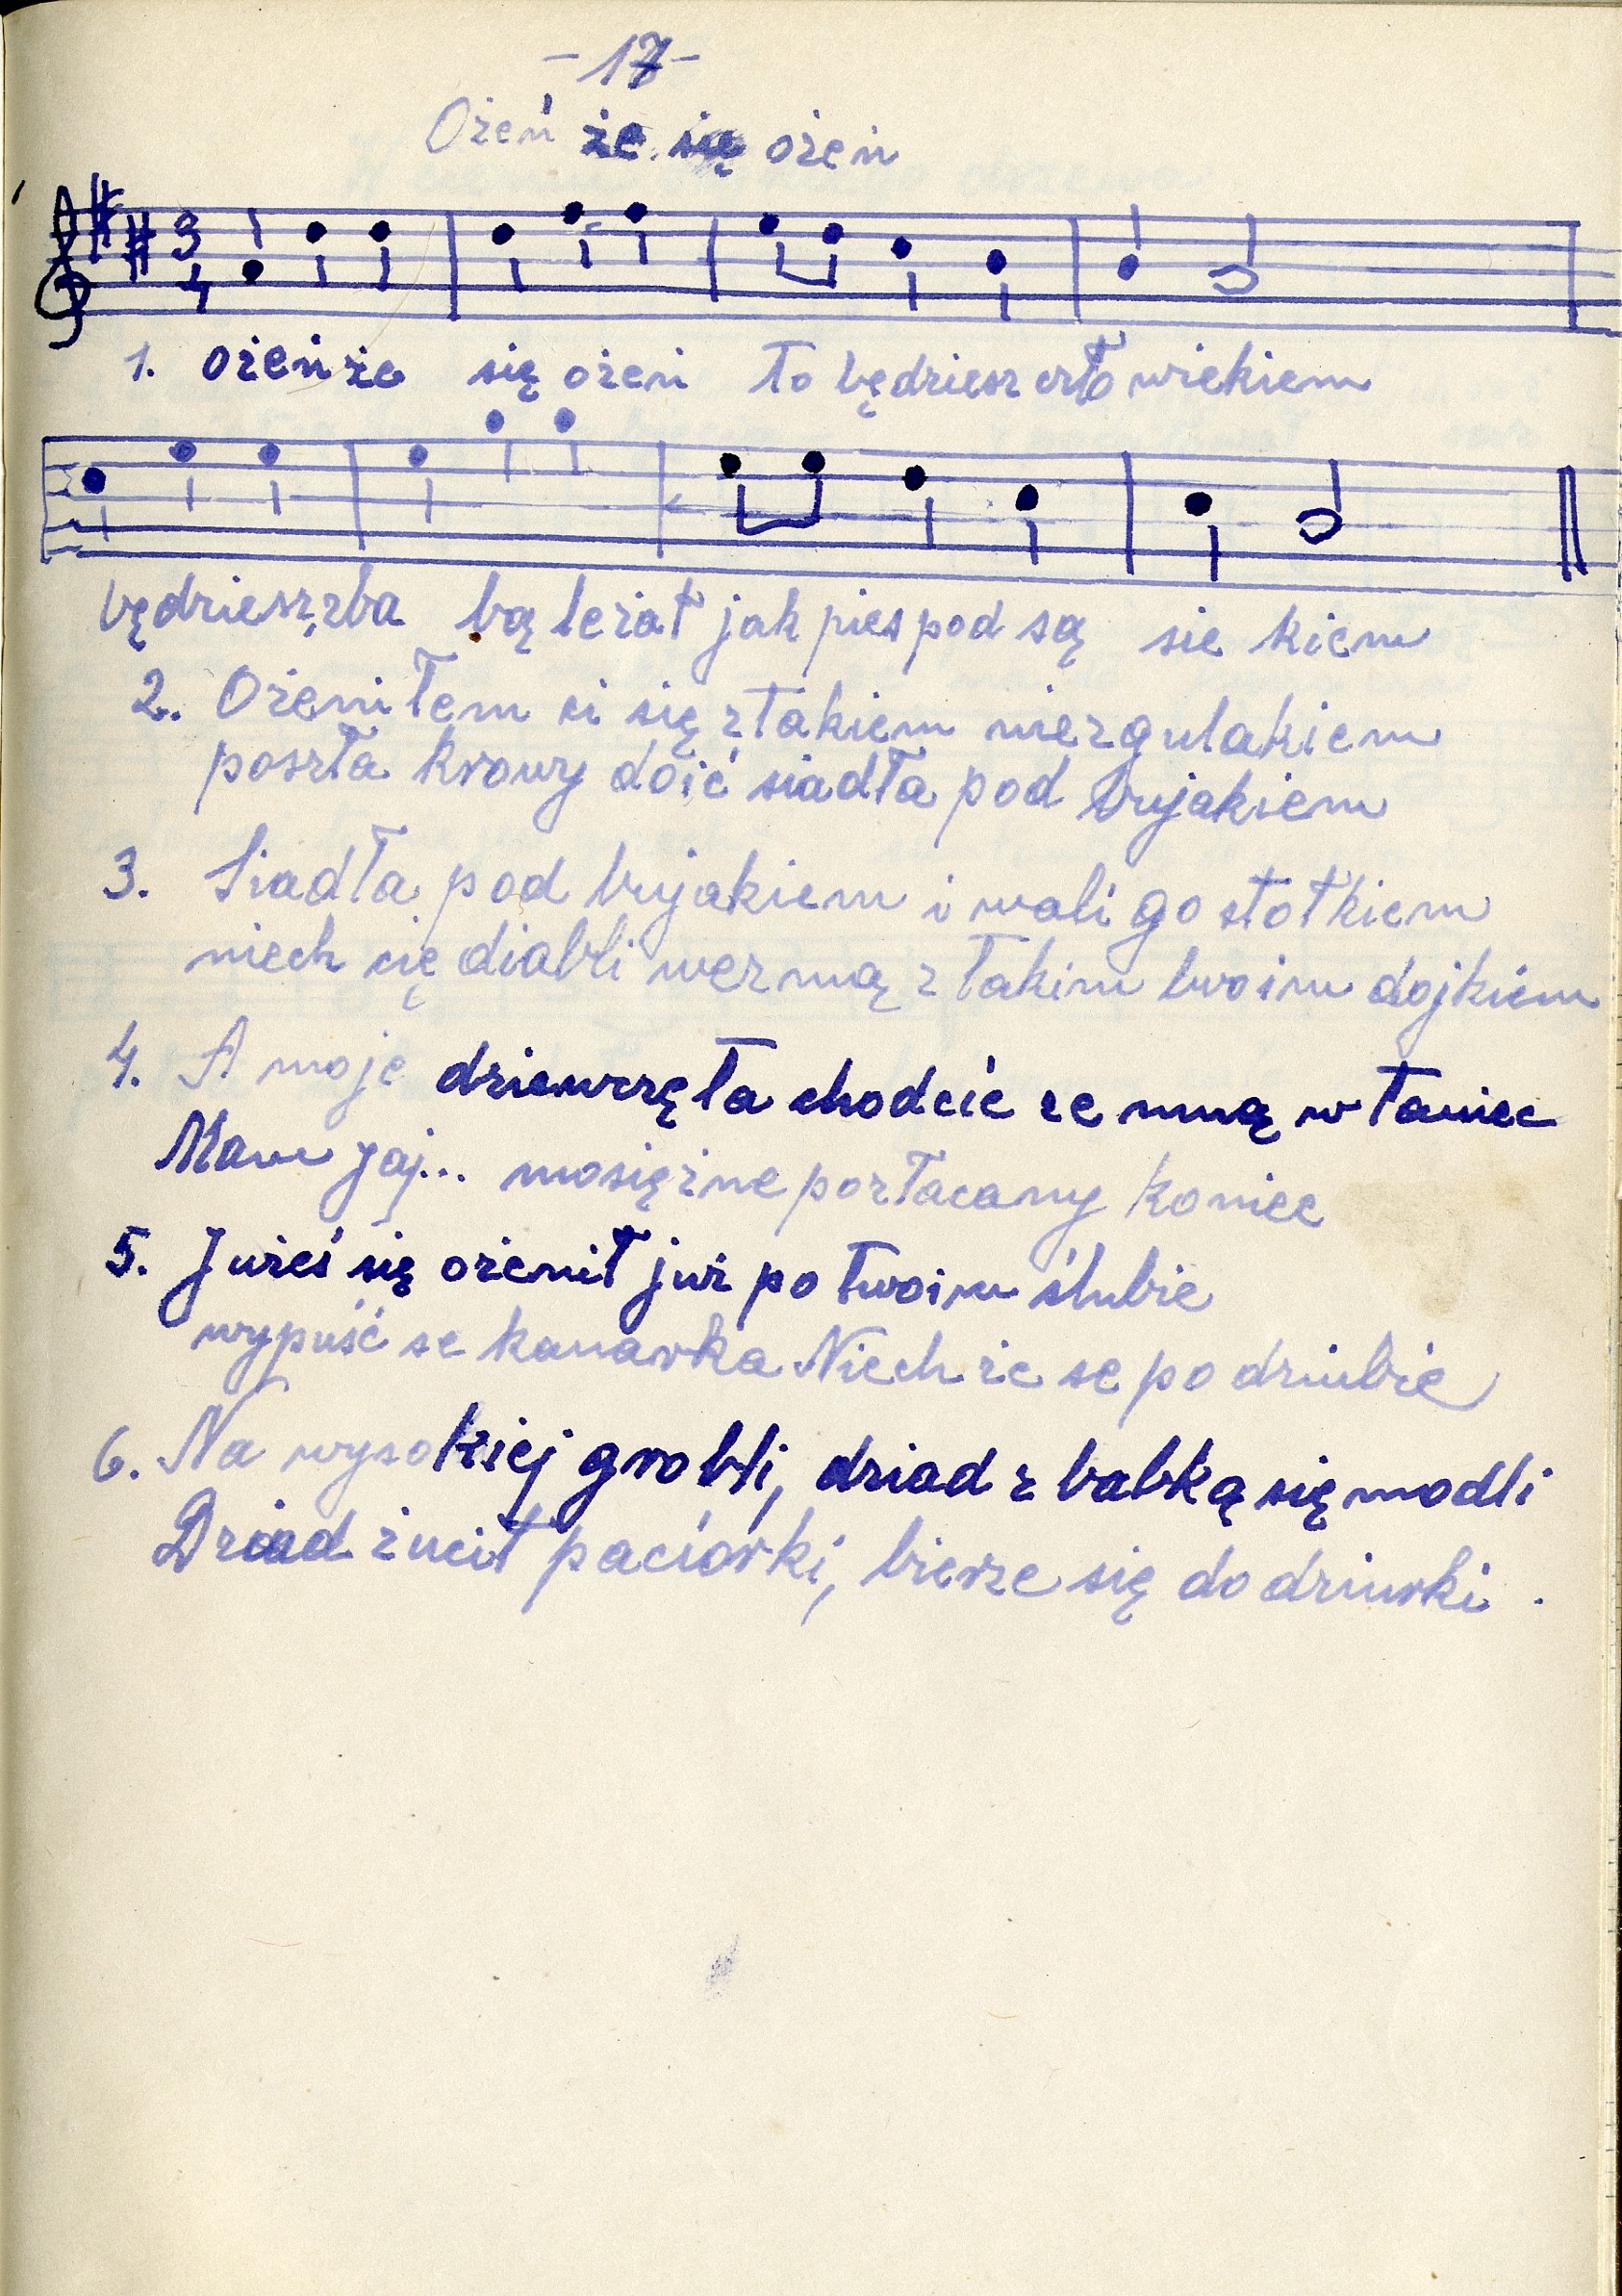 - 17 -
Ożeń że się ożeń
3
4
1. ożeń że się ożeń to będziesz czło wiekiem
będziesz z ba bą leżał jak pies pod są sie kiem
2. Ożeniłem ci się z takiem niezgulakiem
poszła krowy doić siadła pod bujakiem
3. Siadła pod bujakiem i wali go stołkiem
niech cię diabli wezmą z takim twoim dojkiem
4. A moje dziewczęta chodcie ze mną w taniec
Mam jaj... mosiężne pozłacany koniec
5. Jużeś się ożenił już po twoim ślubie
wypuść se kanarka Niech że se podziubie
6. Na wysokiej grobli, dziad z babką się modli
Dziad żucił paciórki, bierze się do dziurki.